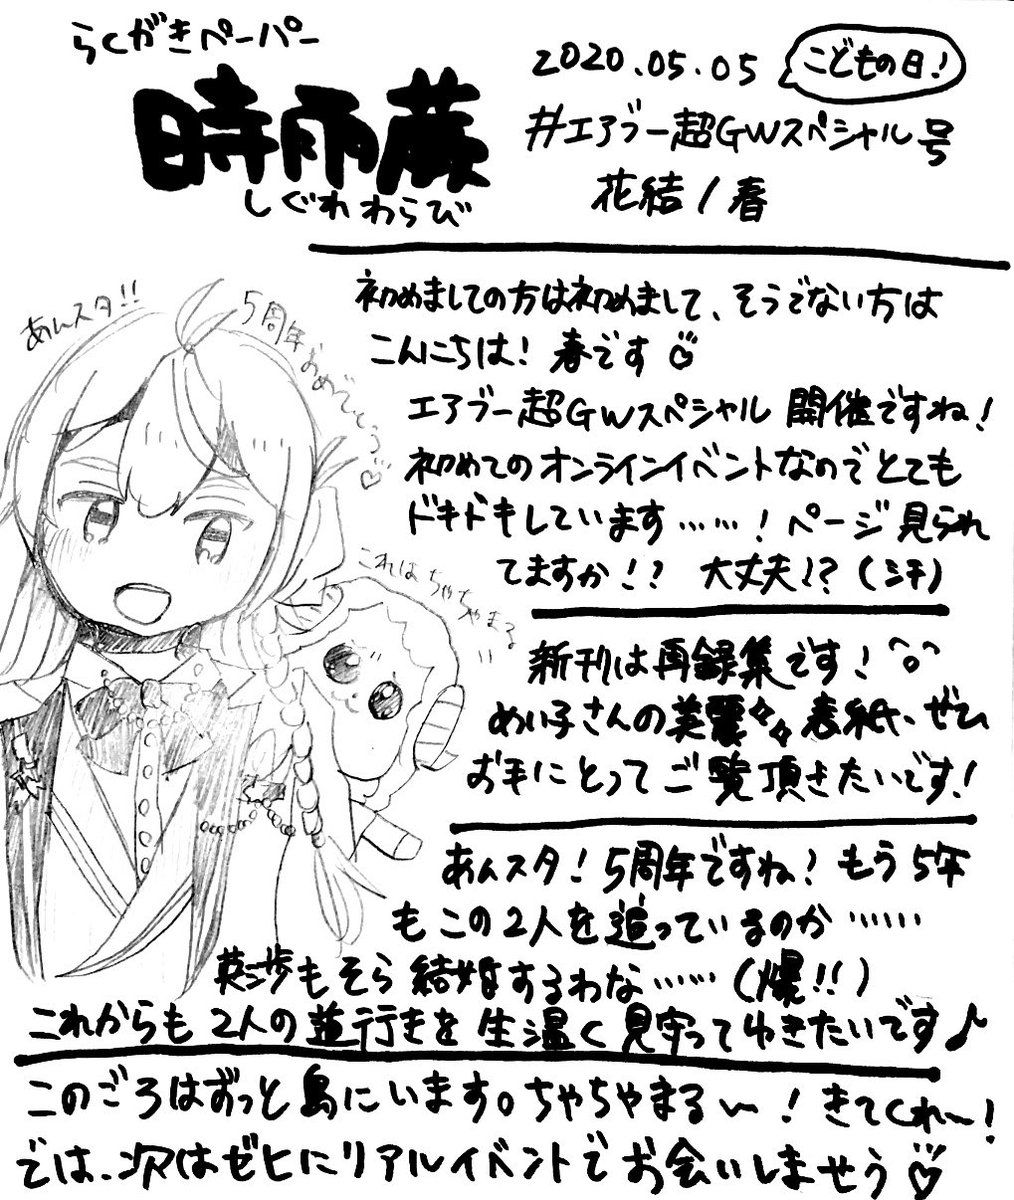 らくがきペーパー
時雨蕨
しぐれわらび
2020.05.05
こどもの日!
#エアブー超GWスペシャル号
花結/春
初めましての方は初めまして、そうでない方は
こんにちは! 春です♡
エアブー超GWスペシャル 開催ですね!
初めてのオンラインイベントなのでとても
ドキドキしています……! ページ見られ
てますか!? 大丈夫!? (汗)
新刊は再録集です! ^o^
めい子さんの美麗な表紙、ぜひ
お手にとってご覧頂きたいです!
あんスタ! 5周年ですね! もう5年
もこの2人を追っているのか……
英渉もそら結婚するわな……(爆!!)
これからも2人の道行きを生温く見守ってゆきたいです♪
このごろはずっと島にいます。ちゃちゃまる〜! きてくれ〜!
では、次はゼヒにリアルイベントでお会いしませう♡
あんスタ!!
5周年おめでとう♡
これはちゃちゃまる